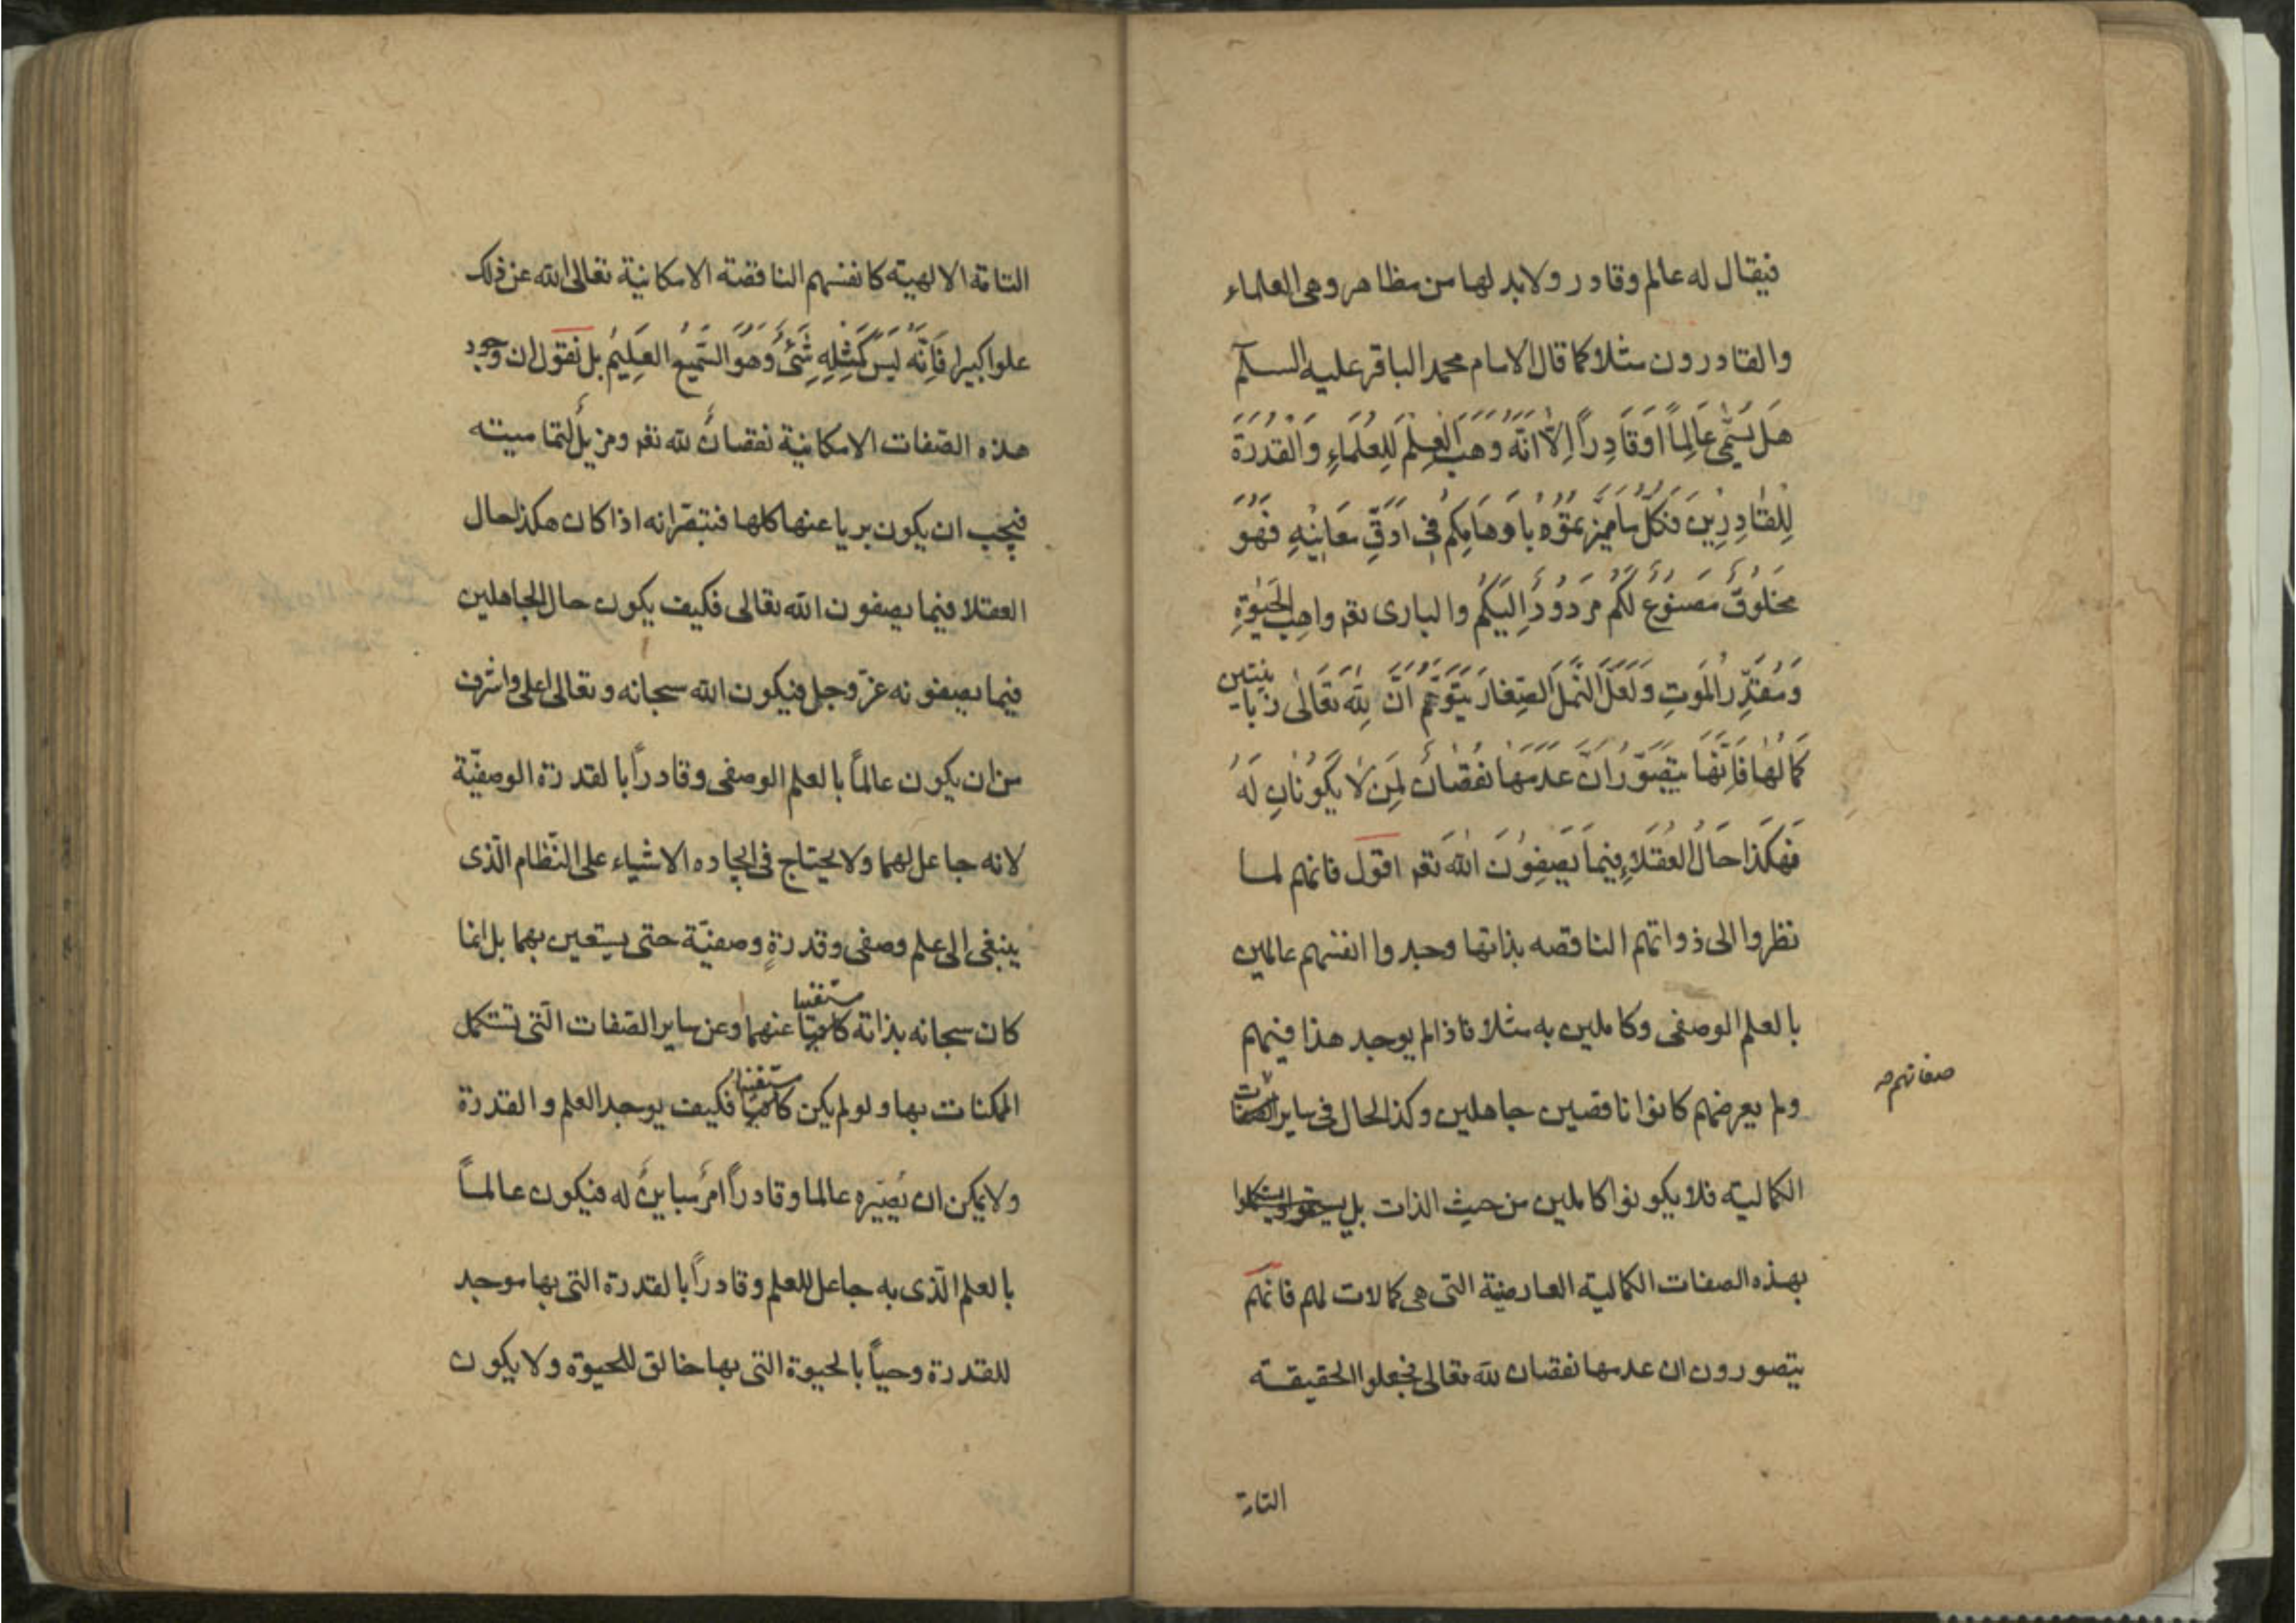 فيقال له عالم وقادر ولابد لها من مظاهر وهى العلماء
والقادرون مثلا كما قال الامام محمد الباقر عليه السلام
هَل يُسَمّى عَالِماً اوقَادِراً اِلّا انّهُ وَهَبَ العِلمَ لِلعُلَماءِ وَالقُدرَةَ
لِلقادِرِينَ فَكُلّ ما مَيّزتمُوهُ باَوهَامِكُم فى اَدَقّ مَعَانِيهِ فَهُوَ
مَخلُوقٌ مَصنُوعٌ لَكُم مَردُودٌ اِلَيكُم والبارى تعم واهِبُ الحَيوةِ
وَمُقَدّرُ المَوتِ وَلَعَلّ النّملَ الصّغارَ يَتَوَهّمُ انّ لِلّه تَعَالى زبانيتين
كمالهَا فَاِنّها يتَصَوّرُ انّ عدمهَا نُقصَانٌ لِمَن لا يَكُونَانِ لَهُ
فهكَذا حَالُ العُقَلاءِ فِيمَا يَصِفُونَ اللهَ تعم اقول فانهم لما
نظروا الى ذواتهم الناقصه بذاتها وجدوا انفسهم عالمين
بالعلم الوصفى وكاملين به مثلا فاذا لم يوجد هذا فيهم
ولم يعرضهم كانوا ناقصين جاهلين وكذا الحال فى ساير
صفاتهم
الكماليه فلا يكونوا كاملين من حيث الذات بل
بهذه الصفات الكماليه العارضية التى هى كمالات لهم فانهم
يتصورون ان عدمها نقصان لله تعالى فجعلوا الحقيقه
التامة
التامة الالهية كانفسهم الناقصة الامكانية تعالى الله عن ذلك
علوا كبيرا فَاِنّه لَيسَ كَمِثلِهِ شَئٌ وهُوَ السّميعُ العَلِيمُ بل نقول ان وجود
هذه الصّفات الامكانية نقصانٌ لله تعم ومزيلٌ لتماميته
فيجب ان يكون بريا عنها كلها فتبصّر انه اذا كان هكذا حال
العقلا فيما يصفون الله تعالى فكيف يكون حال الجاهلين
فيما يصفونه عزّ وجل فيكون الله سبحانه وتعالى اعلى واشرف
من ان يكون عالماً بالعلم الوصفى وقادراً بالقدرة الوصفيّة
لانه جاعل لهما ولا يحتاج فى ايجاده الاشياء على النّظام الّذى
ينبغى الى علم وصفى وقدرةٍ وصفيّة حتى يستعين بهما بل انما
كان سبحانه بذاته مستغنيا عنهما وعن ساير الصّفات الّتى تستكمل
الممكنات بها ولو لم يكن مستغنيا فكيف يوجد العلم والقدرة
ولا يمكن ان يُصيّره عالما وقادراً امرٌ مباينٌ له فيكون عالماً
بالعلم الّذى به جاعل للعلم وقادراً بالقدرة التى بها موجد
للقدرة وحياً بالحيوة التى بها خالق للحيوة ولا يكون